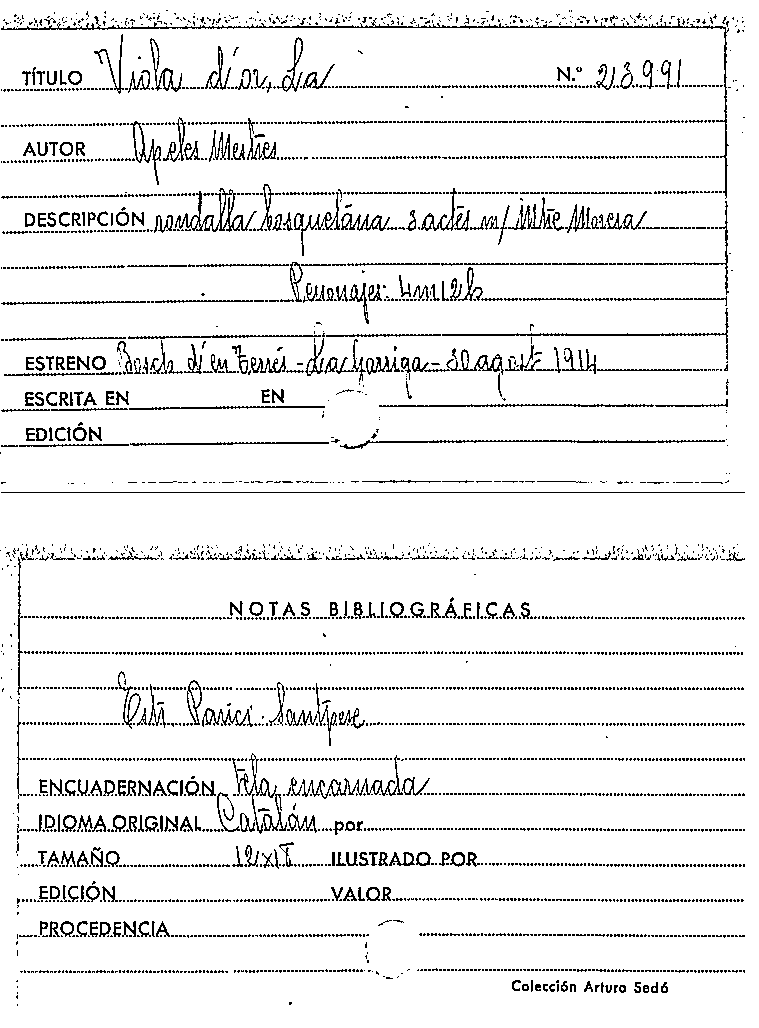 TÍTULO Viola d'or, La N.° 213991
AUTOR Apeles Mestres
DESCRIPCIÓN rondalla bosquetana 3 actes m/ Mtre Morera
Personajes: 4m12h
ESTRENO Bosch d'en Terrés - La Garriga - 30 agost 1914
ESCRITA EN EN
EDICIÓN
NOTAS BIBLIOGRÁFICAS
Estr Parici - Santpere
ENCUADERNACIÓN tela encarnada
IDIOMA ORIGINAL Catalán por
TAMAÑO 12x18 ILUSTRADO POR
EDICIÓN VALOR
PROCEDENCIA
Colección Arturo Sedó